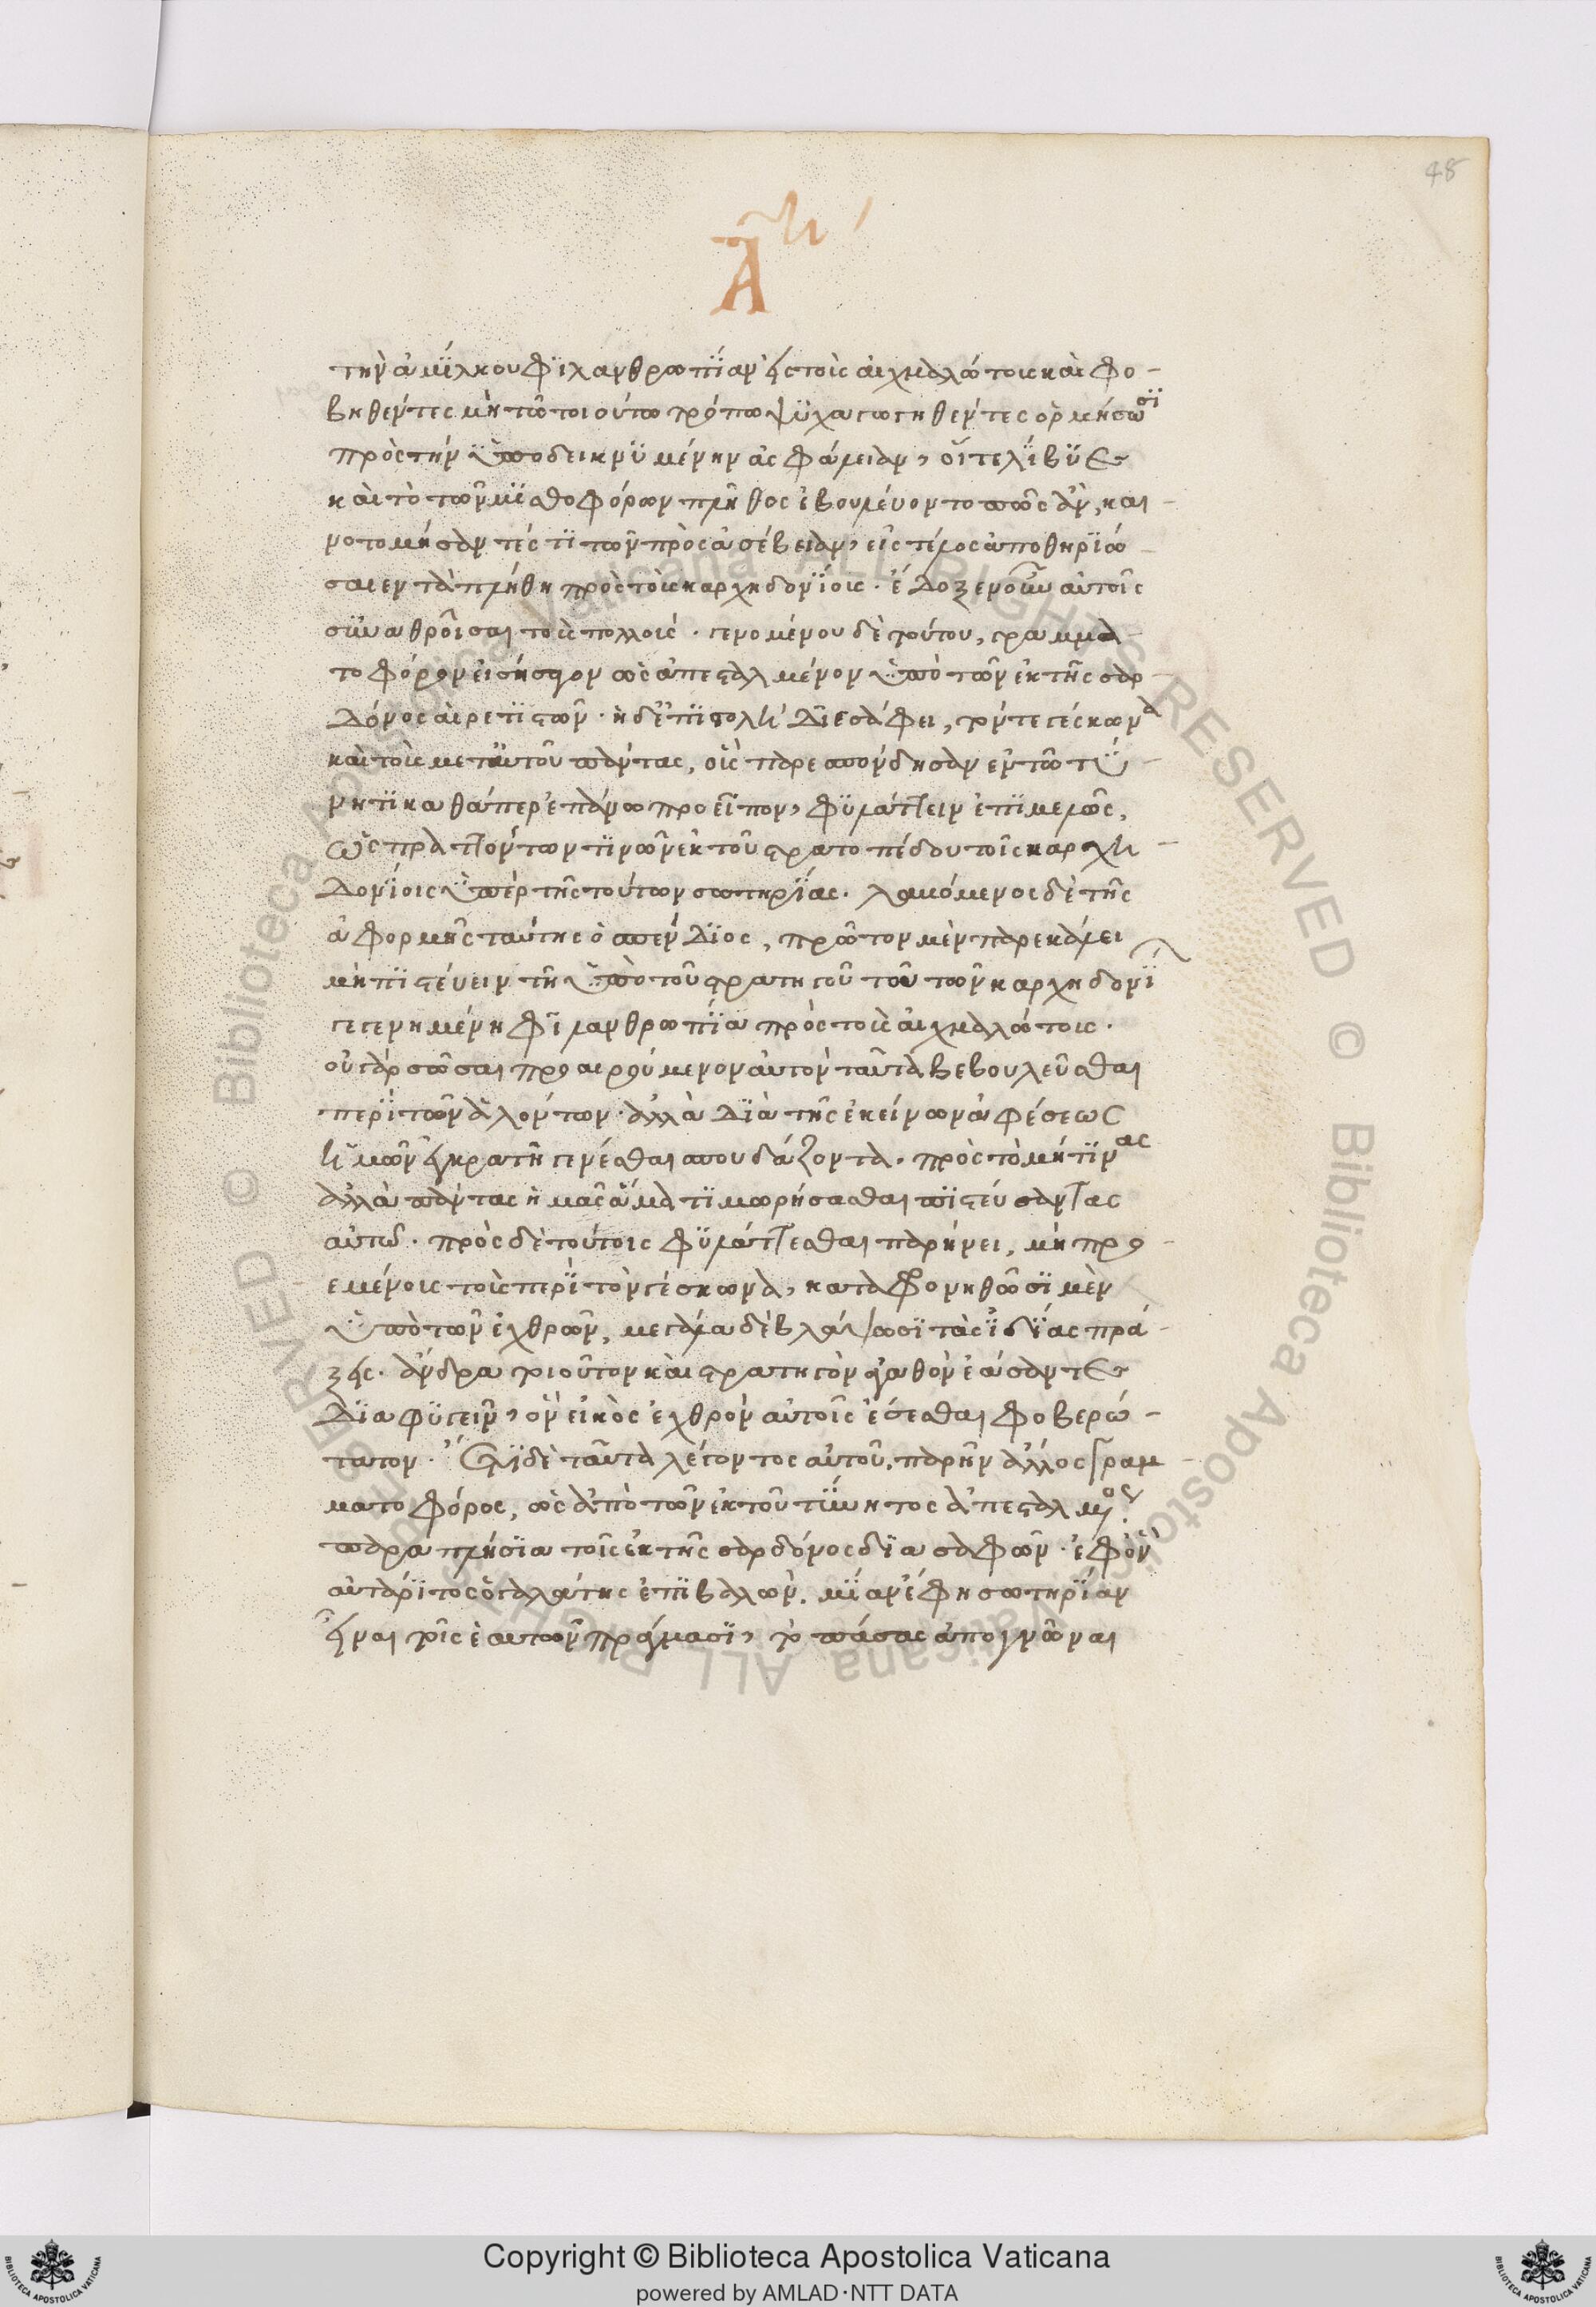 48
Α̅ʹ
τὴν ἀμίλκου φιλανθρωπίαν εἰς τοὺς αἰχμαλώτους καὶ φο-
βηθέντες μὴ τῶ τοιούτω τρόπω ψυχαγωγηθέντες ὁρμήσωσι
πρὸς τὴν ὑποδεικνυμένην ἀσφάλειαν, οἵ τε λίβυες
καὶ τὸ τῶν μισθοφόρων πλῆθος ἐβουλεύοντο πῶς ἂν, και-
νοτομήσαντές τι τῶν πρὸς ἀσέβειαν, εἰς τέλος ἀποθηριώ-
σαιεν τὰ πλήθη πρὸς τοὺς καρχηδονίους. ἔδοξεν οὖν αὐτοῖς
συναθροῖσαι τοὺς πολλούς. γενομένου δὲ τούτου, γραμμα-
τοφόρον εἰσήγαγον ὡς ἀπεσταλμένον ὑπὸ τῶν ἐκ τῆς σαρ-
δόνος αἱρετιστῶν. ἡ δ' ἐπιστολὴ διεσάφει, τόν τε γέσκωνα
καὶ τοὺς μετ' αὐτοῦ πάντας, οὓς παρεσπόνδησαν ἐν τῶ τύ-
νητι καθάπερ ἐπάνω προεῖπον, φυλάττειν ἐπιμελῶς,
ὡς πραττόντων τινῶν ἐκ τοῦ στρατοπέδου τοῖς καρχη-
δονίοις ὑπὲρ τῆς τούτων σωτηρίας. λαβόμενος δὲ τῆς
ἀφορμῆς ταύτης ὁ σπένδιος, πρῶτον μὲν παρεκάλει
μὴ πιστεύειν τῆ ὑπὸ τοῦ στρατηγοῦ τοῦ τῶν καρχηδονί
γεγενημένη φιλανθρωπία πρὸς τοὺς αἰχμαλώτους.
οὐ γὰρ σῶσαι προαιρούμενον αὐτὸν ταῦτα βεβουλεῦσθαι
περὶ τῶν ἁλόντων. ἀλλὰ διὰ τῆς ἐκείνων ἀφέσεως
ἡμῶν ἐγκρατῆ γενέσθαι σπουδάζοντα. πρὸς τὸ μή τινας
ἀλλὰ πάντας ἡμᾶς ἅμα τιμωρήσασθαι πιστεύσαντας
αὐτῶ. πρὸς δὲ τούτοις φυλάττεσθαι παρήνει, μὴ προ-
εμένοις τοὺς περὶ τὸν γέσκωνα, καταφρονηθῶσι μὲν
ὑπὸ τῶν ἐχθρῶν, μεγάλα δὲ βλάψωσι τὰς ἰδίας πρά-
ξεις. ἄνδρα τοιοῦτον καὶ στρατηγὸν ἀγαθὸν ἐάσαντες
διαφυγεῖν, ὃν εἰκὸς ἐχθρὸν αὐτοῖς ἔσεσθαι φοβερώ-
τατον. ἔτι δὲ ταῦτα λέγοντος αὐτοῦ, παρῆν ἄλλος γραμ-
ματοφόρος, ὡς ἀπὸ τῶν ἐκ τοῦ τύνητος ἀπεσταλμος.
παραπλήσια τοῖς ἐκ τῆς σαρδόνος διασαφῶν. ἐφ' ὃν
αὐτάριτος ὁ γαλάτης ἐπιβαλὼν. μίαν ἔφη σωτηρίαν
εἶναι τοῖς ἑαυτῶν πράγμασι, τὸ πάσας ἀπογνῶναι
Copyright © Biblioteca Apostolica Vaticana
powered by AMLAD·NTT DATA